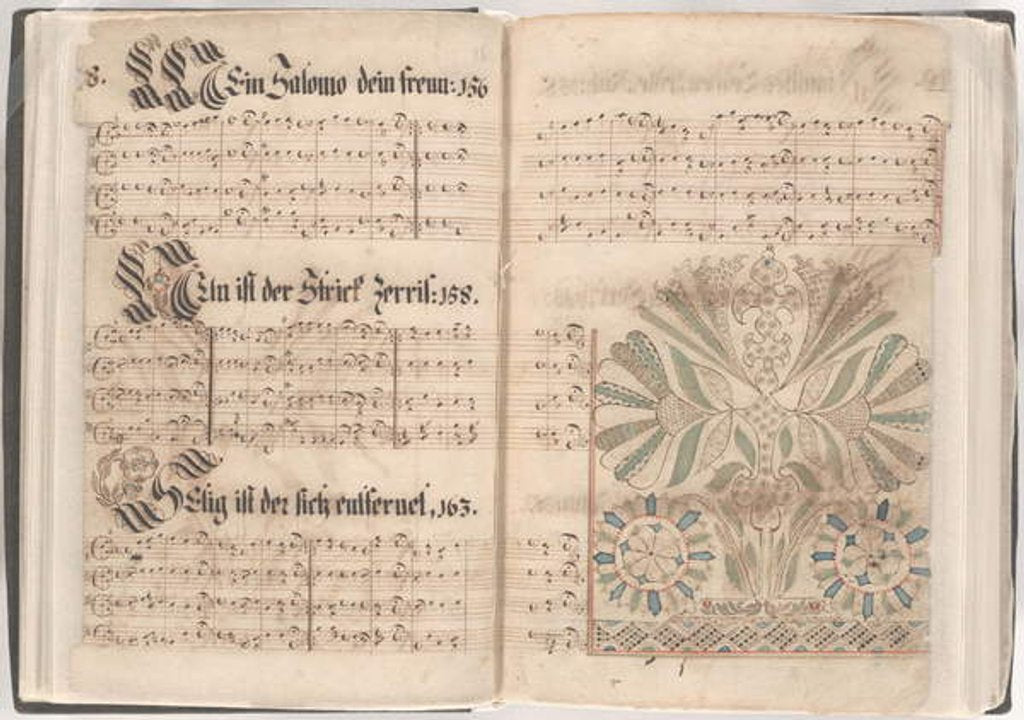 8. Mein Salomo dein freun: 156
Nun ist der Strick Zerriß: 158.
Selig ist der sich entfernet, 163.